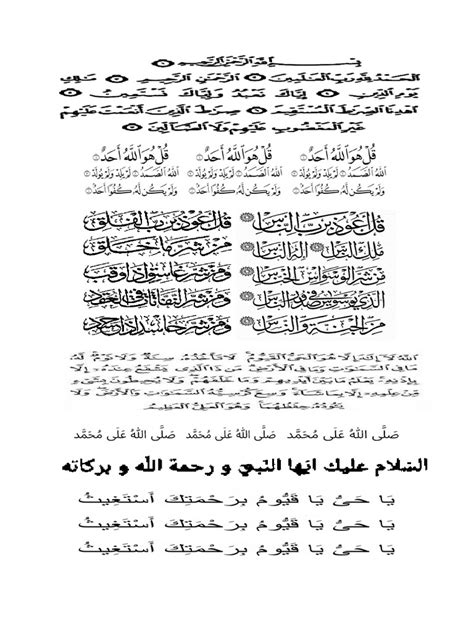 بسم الله الرحمن الرحيم
الحمد لله رب العالمين الرحمن الرحيم مالك
يوم الدين إياك نعبد وإياك نستعين
اهدنا الصراط المستقيم صراط الذين أنعمت عليهم
غير المغضوب عليهم ولا الضالين
قُلْ هُوَ اللَّهُ أَحَدٌ قُلْ هُوَ اللَّهُ أَحَدٌ قُلْ هُوَ اللَّهُ أَحَدٌ
اللَّهُ الصَّمَدُ لَمْ يَلِدْ وَلَمْ يُولَدْ اللَّهُ الصَّمَدُ لَمْ يَلِدْ وَلَمْ يُولَدْ اللَّهُ الصَّمَدُ لَمْ يَلِدْ وَلَمْ يُولَدْ
وَلَمْ يَكُن لَّهُ كُفُوًا أَحَدٌ وَلَمْ يَكُن لَّهُ كُفُوًا أَحَدٌ وَلَمْ يَكُن لَّهُ كُفُوًا أَحَدٌ
قل أعوذ برب الناس
ملك الناس إله الناس
من شر الوسواس الخناس
الذي يوسوس في صدور الناس
من الجنة والناس
قل أعوذ برب الفلق
من شر ما خلق
ومن شر غاسق إذا وقب
ومن شر النفاثات في العقد
ومن شر حاسد إذا حسد
الله لا إله إلا هو الحي القيوم لا تأخذه سنة ولا نوم له
ما في السموات وما في الأرض من ذا الذي يشفع عنده إلا
بإذنه يعلم ما بين أيديهم وما خلفهم ولا يحيطون بشيء
من علمه إلا بما شاء وسع كرسيه السموات والأرض ولا
يؤده حفظهما وهو العلي العظيم
صَلَّى اللهُ عَلَى مُحَمَّد صَلَّى اللهُ عَلَى مُحَمَّد صَلَّى اللهُ عَلَى مُحَمَّد
السّلام عليك ايها النّبيّ و رحمة اللّه و بركاته
يَا حَىُّ يَا قَيُّومُ بِرَحْمَتِكَ أَسْتَغِيثُ
يَا حَىُّ يَا قَيُّومُ بِرَحْمَتِكَ أَسْتَغِيثُ
يَا حَىُّ يَا قَيُّومُ بِرَحْمَتِكَ أَسْتَغِيثُ